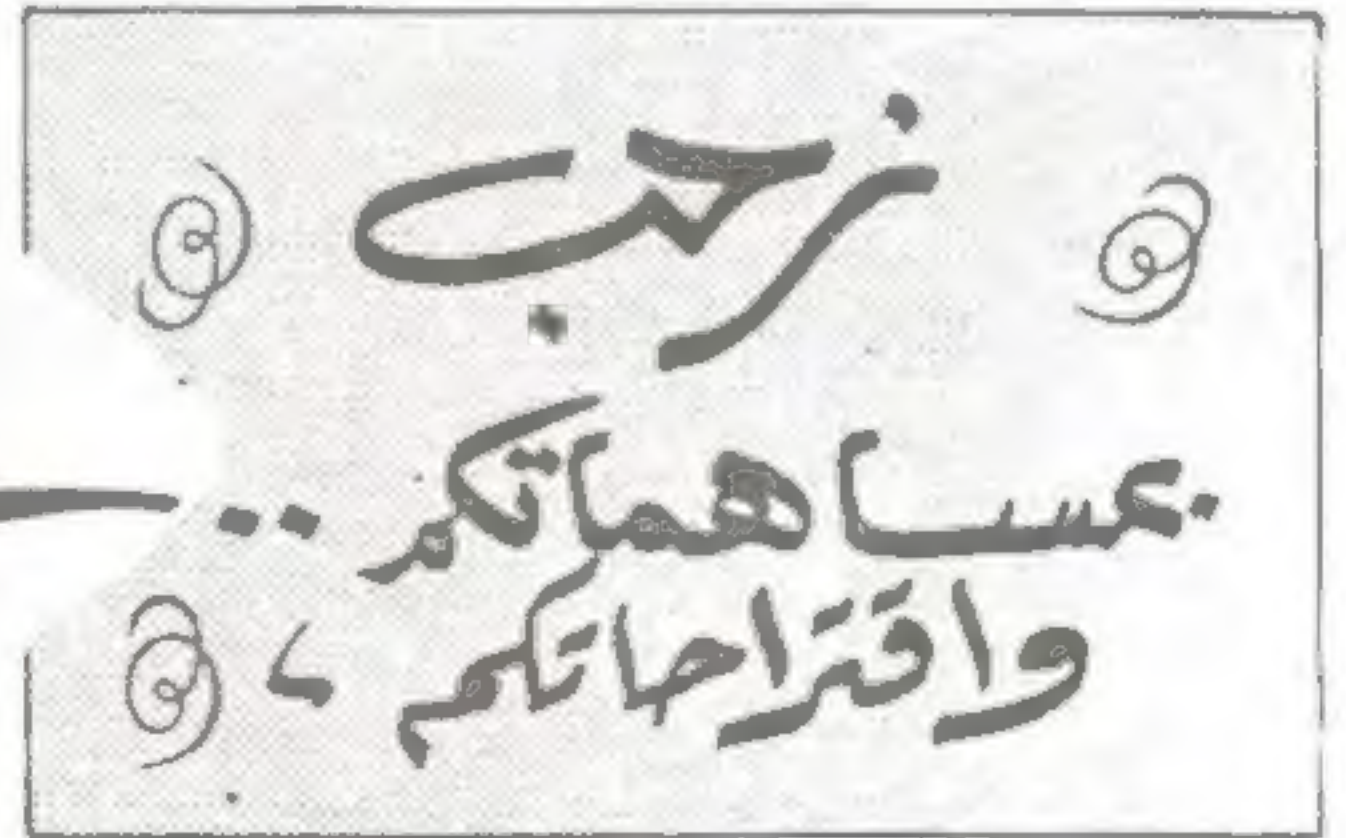 نرحب
بمساهماتكم ..
واقتراحاتكم ،